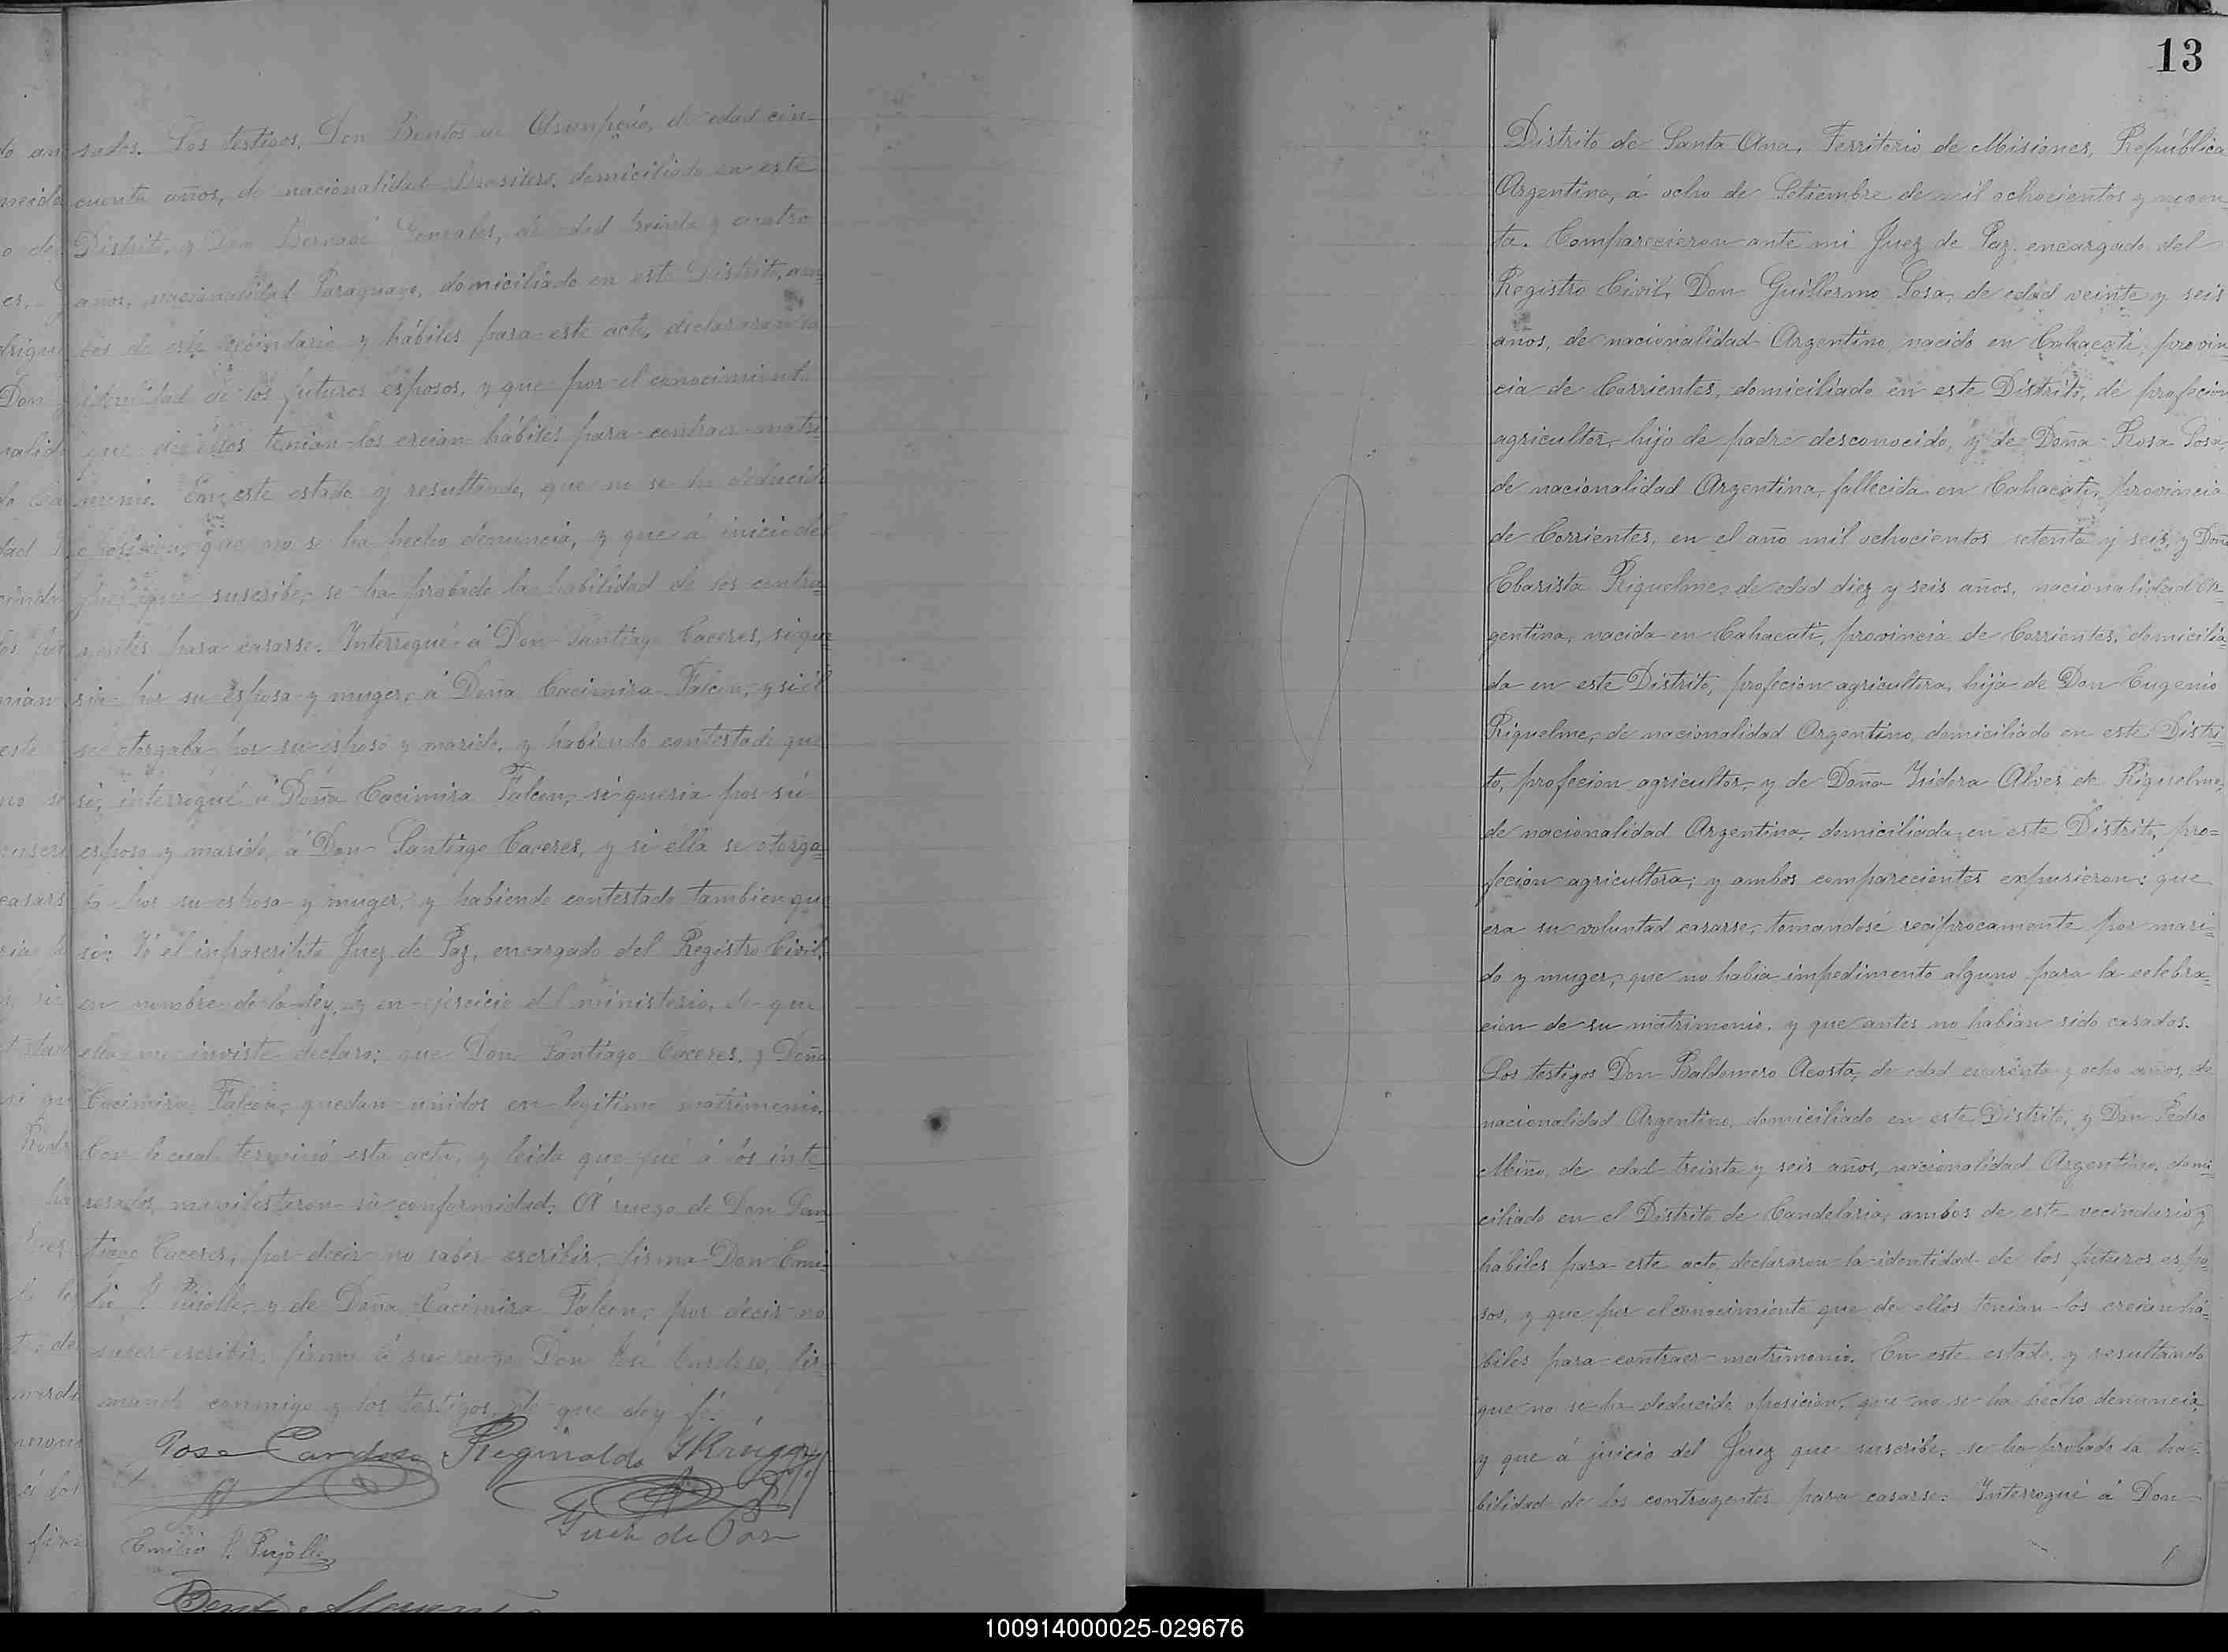 sados. Los testigos, Don Bentos de Asumpcáo, de edad cin-
cuenta años, de nacionalidad Brasilero, domiciliado en este
Distrito, y Don Bernavé Gonzales, de edad treinta y cuatro
anos, nacionalidad Paraguayo, domiciliado en este Distrito, am-
bos de este vecindario y hábiles para este acto, declararon la
identidad de los futuros esposos, y que por el conocimiento
que de ellos tenian los creian hábiles para contraer matri-
monio. En este estado y resultando, que no se ha deducido
oposicion, que no se ha hecho denuncia, y que á juicio del
Juez que suscribe, se ha probado la habilidad de los contra-
yentes para casarse. Interrogué á Don Santiago Caceres, si que
ria por su esposa y muger, á Doña Cacimira Falcon, y si él
se otorgaba por su esposo y marido, y habiendo contestado que
si; interrogué á Doña Cacimira Falcon, si queria por su
esposo y marido, á Don Santiago Caceres, y si ella se otorga-
ba por su esposa y muger, y habiendo contestado tambien que
si; Yo el infrascripto Juez de Paz, encargado del Registro Civil,
en nombre de la ley, y en ejercicio del ministerio, de que
ella me inviste declaro; que Don Santiago Caceres, y Doña
Cacimira Falcon, quedan unidos en legitimo matrimonio.
Con lo cual terminó esta acta, y leida que fué á los inte
resados, manifesteron su conformidad. A ruego de Don San
tiago Caceres, por decir no saber escribir, firma Don Emi-
lio P. Pujolle, y de Doña Cacimira Falcon, por decir no
saber escribir, firma á su ruego Don José Cardoso, fir-
mando conmigo y los testigos, de que doy fé.
Jose Cardoso Reginaldo
Juez de Paz
Emilio P. Pujolle
13
Distrito de Santa Ana, Territorio de Misiones, República
Argentina, á ocho de Setiembre de mil ochocientos y noven-
ta. Comparecieron ante mi Juez de Paz, encargado del
Registro Civil, Don Guillermo Sosa, de edad veinte y seis
anos, de nacionalidad Argentino, nacido en Cahacati, provin-
cia de Corrientes, domiciliado en este Distrito, de profecion
agricultor, hijo de padre desconocido, y de Doña Rosa Sosa,
de nacionalidad Argentina, fallecida en Cahacati, provincia
de Corrientes, en el año mil ochocientos setenta y seis, y Doña
Ebarista Riquelme, de edad diez y seis años, nacionalidad Ar-
gentina, nacida en Cahacati, provincia de Corrientes, domicilia-
da en este Distrito, profecion agricultora, hija de Don Eugenio
Riquelme, de nacionalidad Argentino, domiciliado en este Distri-
to, profecion agricultor, y de Doña Ysidora Alves de Riquelme,
de nacionalidad Argentina, domiciliada en este Distrito, pro-
fecion agricultora; y ambos comparecientes expusieron: que
era su voluntad casarse, tomandosé reciprocamente por mari-
do y muger, que no habia impedimento alguno para la celebra-
cion de su matrimonio, y que antes no habian sido casados.
Los testigos Don Baldomero Acosta, de edad cuarenta y ocho años, de
nacionalidad Argentino, domiciliado en este Distrito, y Don Pedro
Miño, de edad treinta y seis años, nacionalidad Argentino, domi-
ciliado en el Distrito de Candelaria, ambos de este vecindario y
hábiles para este acto, declararon la identidad de los futuros espo-
sos, y que por el conocimiento que de ellos tenian los creian há-
biles para contraer matrimonio. En este estado, y resultando
que no se ha deducido oposicion, que no se ha hecho denuncia,
y que á juicio del Juez que suscribe, se ha probado la ha-
bilidad de los contrayentes para casarse. Interrogué á Don
100914000025-029676